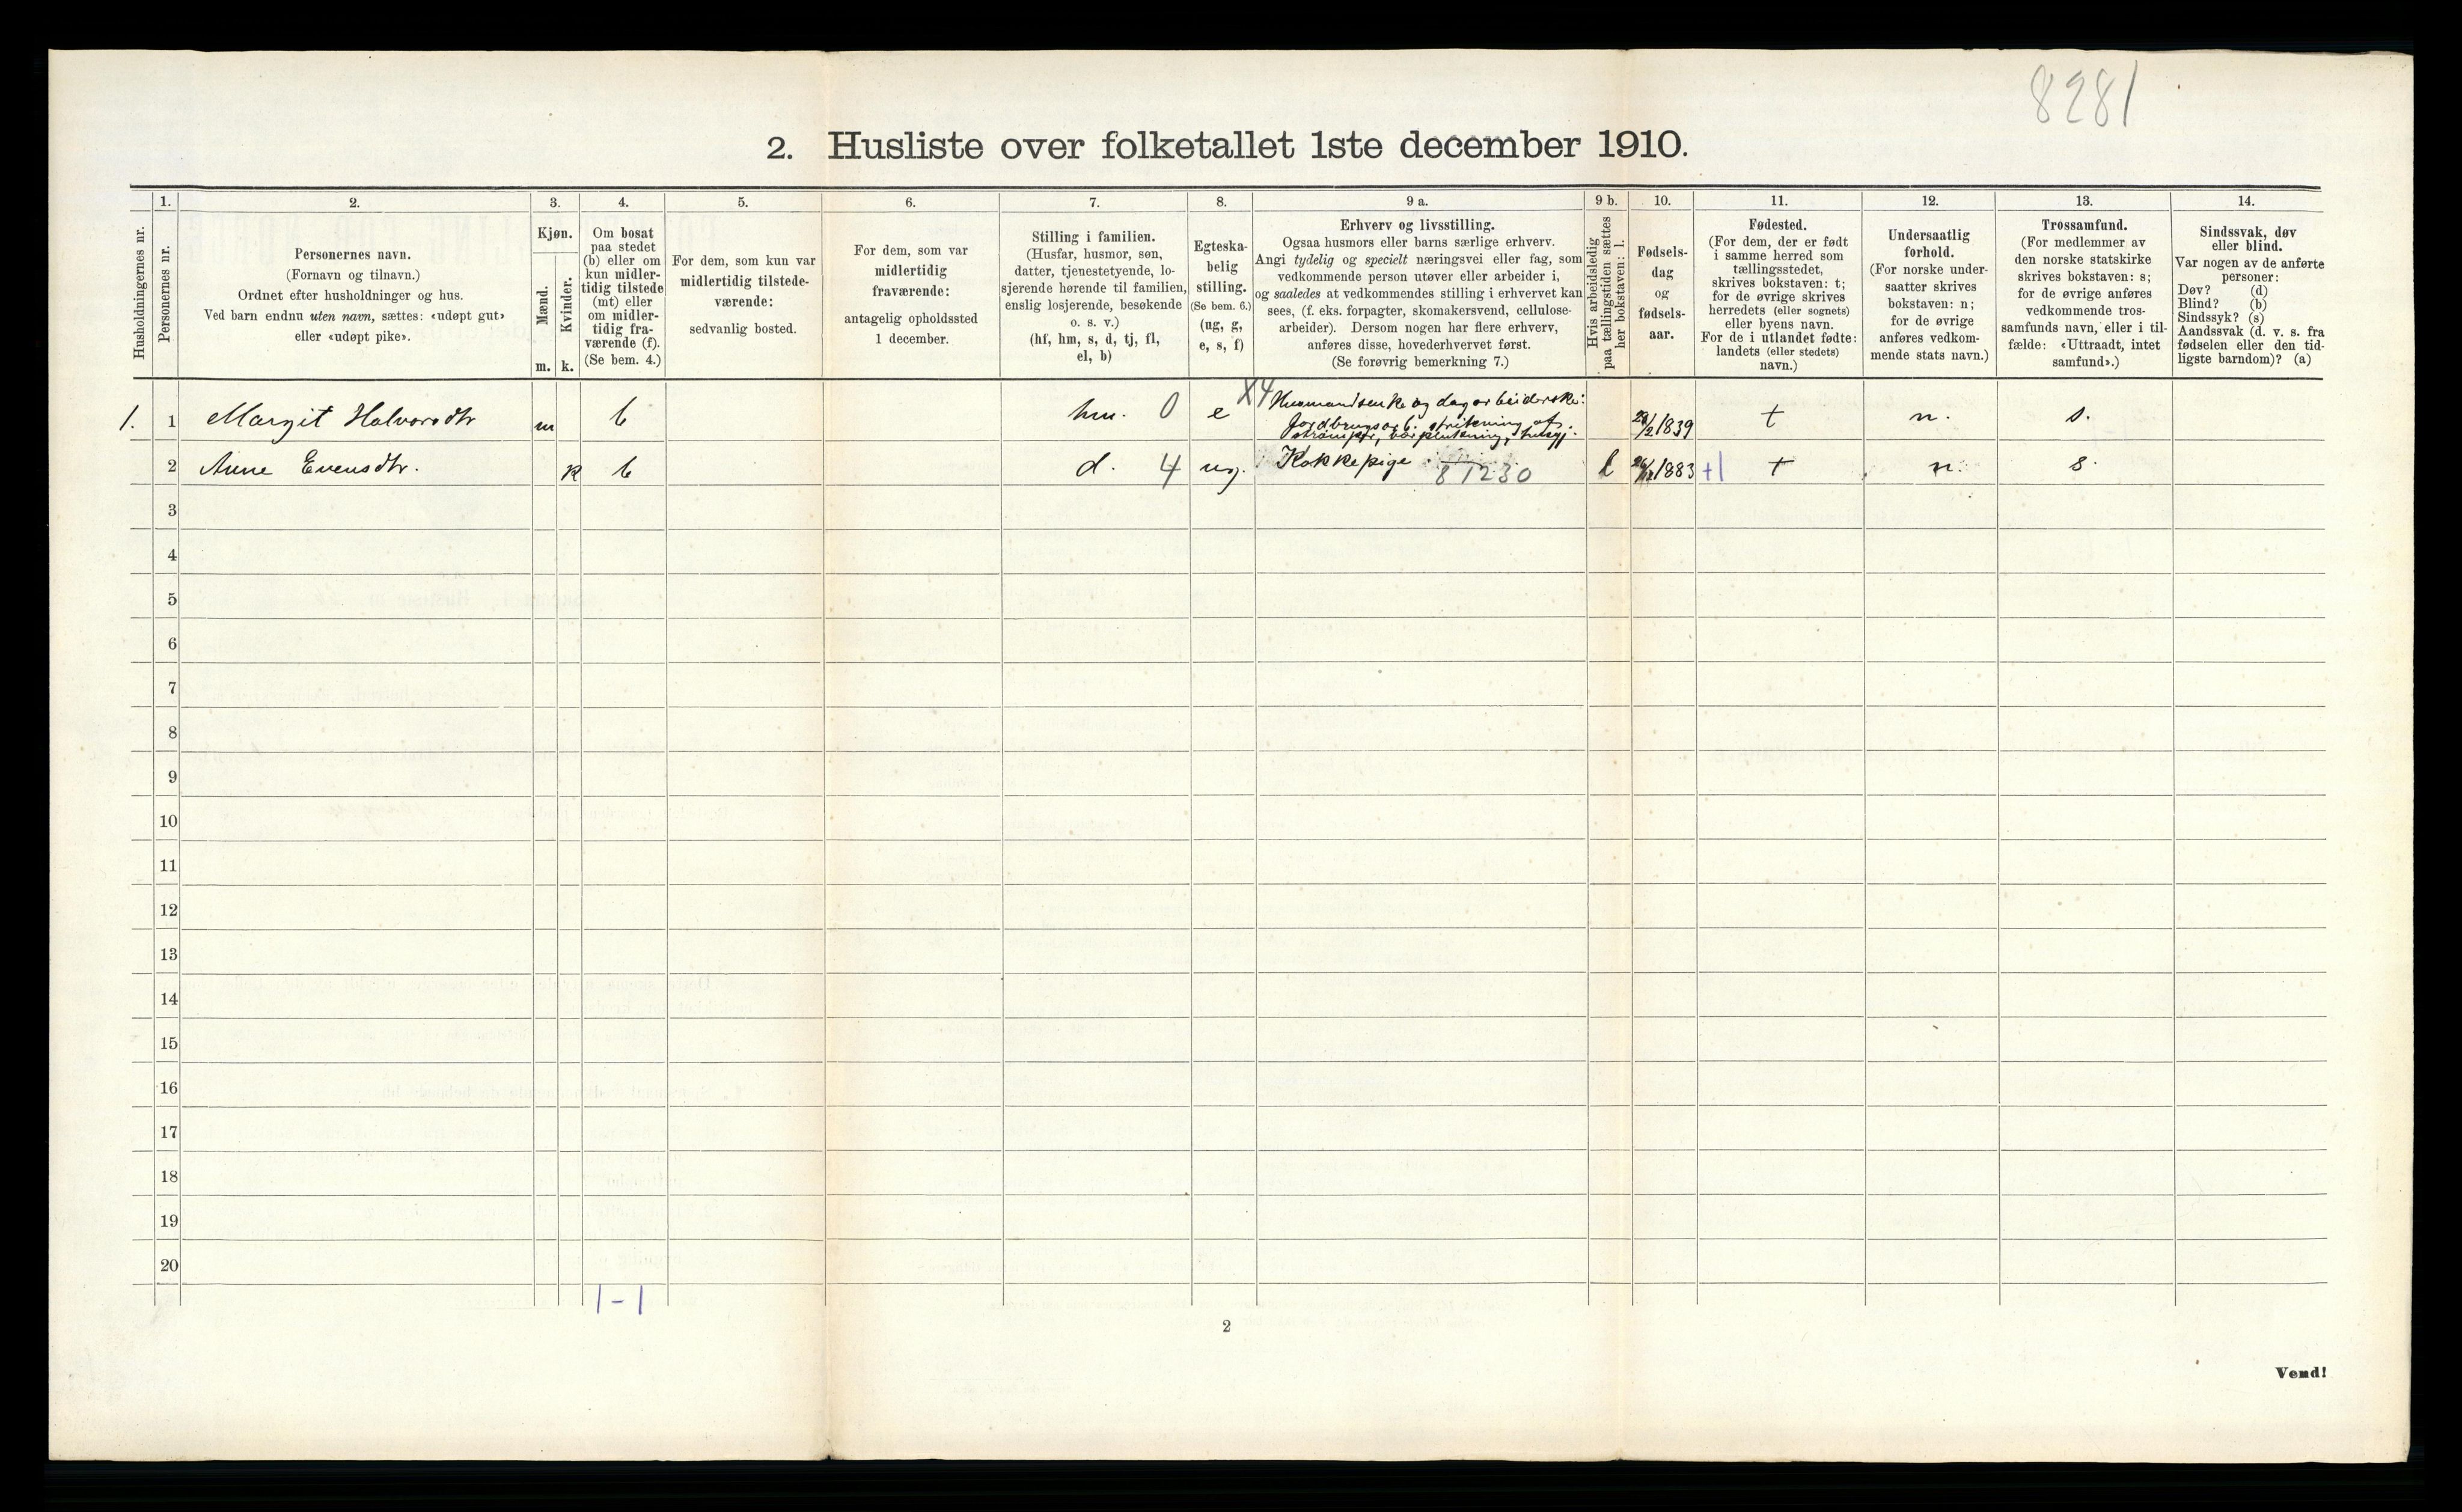 8281
2. Husliste over folketallet 1ste december 1910.
Husholdningernes nr.
1.
Personernes nr.
2.
Personernes navn.
(Fornavn og tilnavn.)
Ordnet efter husholdninger og hus.
Ved barn endnu uten navn, sættes: «udøpt gut»
eller «udøpt pike».
3.
Kjøn.
Mænd.
m.
Kvinder.
k.
4.
Om bosat
paa stedet
(b) eller om
kun midler-
tidig tilstede
(mt) eller
om midler-
tidig fra-
værende (f).
(Se bem. 4.)
5.
For dem, som kun var
midlertidig tilstede-
værende:
sedvanlig bosted.
6.
For dem, som var
midlertidig
fraværende:
antagelig opholdssted
1 december.
7.
Stilling i familien.
(Husfar, husmor, søn,
datter, tjenestetyende, lo-
sjerende hørende til familien,
enslig losjerende, besøkende
o. s. v.)
(hf, hm, s, d, tj, fl,
el, b)
8.
Egteska-
belig
stilling.
(Se bem. 6.)
(ug, g,
e, s, f)
9 a.
Erhverv og livsstilling.
Ogsaa husmors eller barns særlige erhverv.
Angi tydelig og specielt næringsvei eller fag, som
vedkommende person utøver eller arbeider i,
og saaledes at vedkommendes stilling i erhvervet kan
sees, (f. eks. forpagter, skomakersvend, cellulose-
arbeider). Dersom nogen har flere erhverv,
anføres disse, hovederhvervet først.
(Se forøvrig bemerkning 7.)
9 b.
Hvis arbeidsledig
paa tællingstiden sættes
her bokstaven: l.
10.
Fødsels-
dag
og
fødsels-
aar.
11.
Fødested.
(For dem, der er født
i samme herred som
tællingsstedet,
skrives bokstaven: t;
for de øvrige skrives
herredets (eller sognets)
eller byens navn.
For de i utlandet fødte:
landets (eller stedets)
navn.)
12.
Undersaatlig
forhold.
(For norske under-
saatter skrives
bokstaven: n;
for de øvrige
anføres vedkom-
mende stats navn.)
13.
Trossamfund.
(For medlemmer av
den norske statskirke
skrives bokstaven: s;
for de øvrige anføres
vedkommende tros-
samfunds navn, eller i til-
fælde: «Uttraadt, intet
samfund».)
14.
Sindssvak, døv
eller blind.
Var nogen av de anførte
personer:
Døv? (d)
Blind? (b)
Sindssyk? (s)
Aandssvak (d. v. s. fra
fødselen eller den tid-
ligste barndom)? (a)
1. 1 Margit Halvorsdtr m b hm. 0 e X4 Husmandsenke og dagarbeiderske: 1839 t n. s.
Jordbrugsarb. strikning af
strømper, bærplukning,
2 Anne Evensdtr. k b d. 4 ug. Kokkepige. 81230 l 1883 +1 t n. s.
3
4
5
6
7
8
9
10
11
12
13
14
15
16
17
18
19
20
1-1
2
Vend!